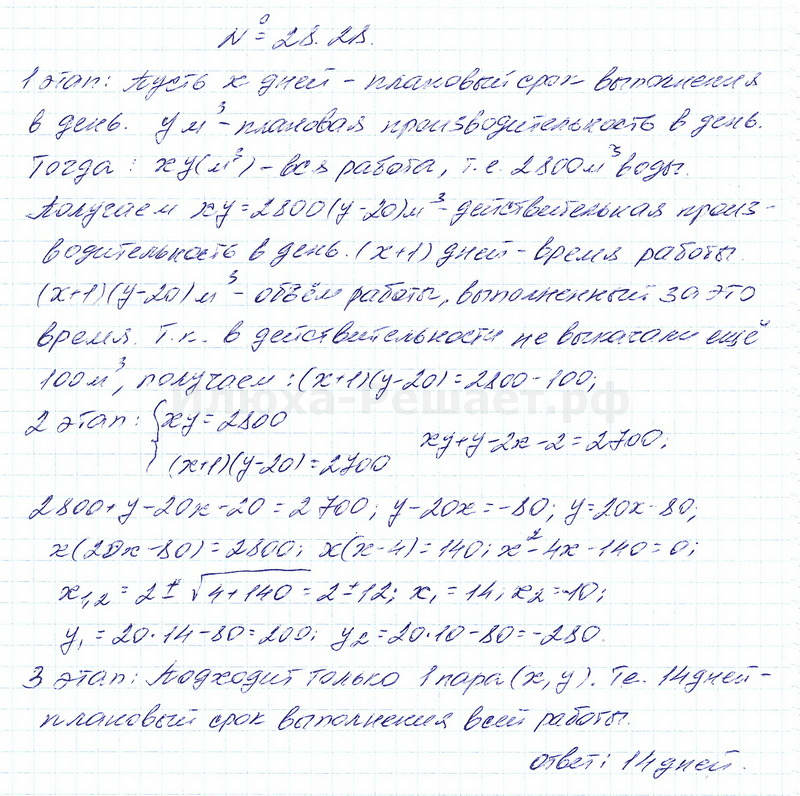 № 28.28.
1 этап: Пусть x дней – плановый срок выполнения
в день. y м³ – плановая производительность в день.
Тогда: xy(м³) – вся работа, т.е. 2800м³ воды.
Получаем xy=2800(y-20)м³ – действительная произ-
водительность в день. (x+1) дней – время работы.
(x+1)(y-20)м³ – объём работы, выполненный за это
время. Т.к. в действительности не выкачали ещё
100м³, получаем: (x+1)(y-20)=2800-100;
илюха-решает.рф
2 этап: { xy=2800
(x+1)(y-20)=2700
xy+y-2x-2=2700;
2800+y-20x-20=2700; y-20x=-80; y=20x-80;
x(20x-80)=2800; x(x-4)=140; x²-4x-140=0;
x₁,₂=2±√4+140=2±12; x₁=14; x₂=-10;
y₁=20·14-80=200; y₂=20·10-80=-280.
3 этап: Подходит только 1 пара (x,y). Те. 14 дней –
плановый срок выполнения всей работы.
ответ: 14 дней.